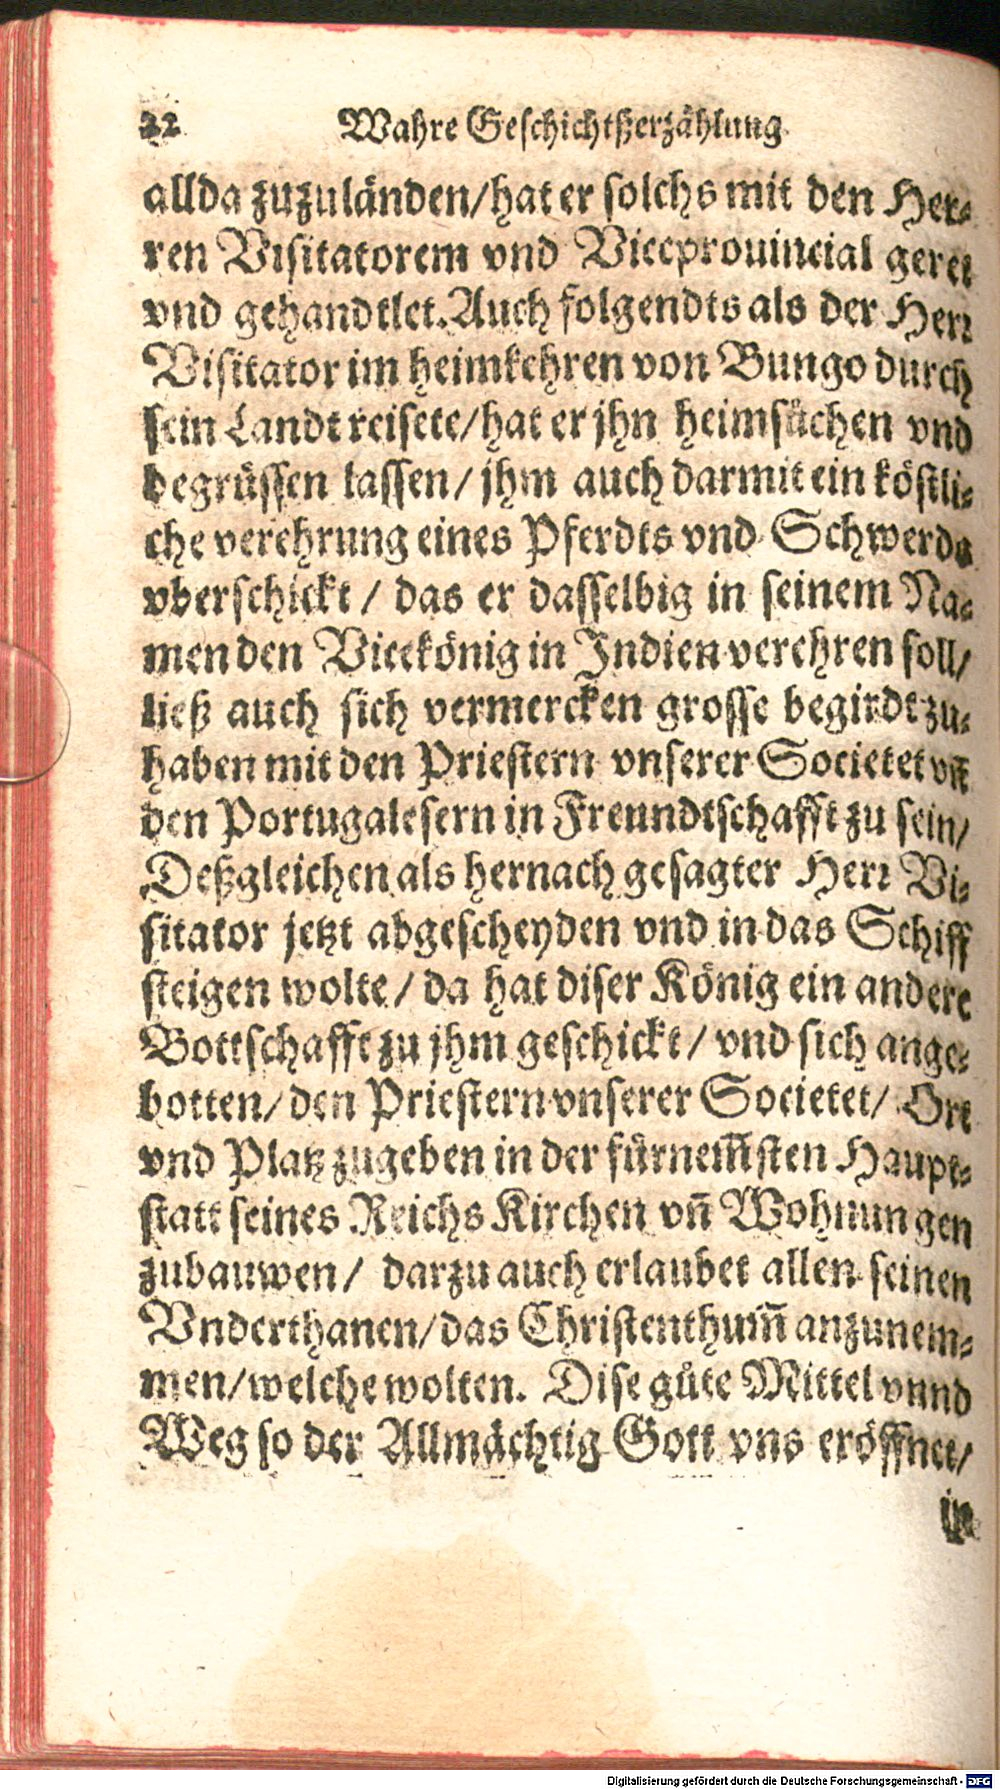 22 Wahre Geschichtßerzählung
allda zuzuländen/hat er solchs mit den Her⸗
ren Visitatorem vnd Viceprouincial geret
vnd gehandtlet. Auch folgendts als der Herr
Visitator im heimkehren von Bungo durch
sein Landt reisete/hat er jhn heimsůchen vnd
begrüssen lassen/ jhm auch darmit ein köstli⸗
che verehrung eines Pferdts vnd Schwerds
vberschickt / das er dasselbig in seinem Na⸗
men den Vicekönig in Indien verehren soll/
ließ auch sich vermercken grosse begirdt zu⸗
haben mit den Priestern vnserer Societet vñ
den Portugalesern in Freundtschafft zu sein/
Deßgleichen als hernach gesagter Herr Vi⸗
sitator jetzt abgescheyden vnd in das Schiff
steigen wolte/ da hat diser König ein andere
Bottschafft zu jhm geschickt/ vnd sich ange⸗
botten/ den Priestern vnserer Societet/ Ort
vnd Platz zugeben in der fürnem̃sten Haupt⸗
statt seines Reichs Kirchen vñ Wohnungen
zubauwen/ darzu auch erlaubet allen seinen
Vnderthanen/das Christenthum̃ anzunem⸗
men/welche wolten. Dise gůte Mittel vnnd
Weg so der Allmächtig Gott vns eröffnet/
in
Digitalisierung gefördert durch die Deutsche Forschungsgemeinschaft - DFG